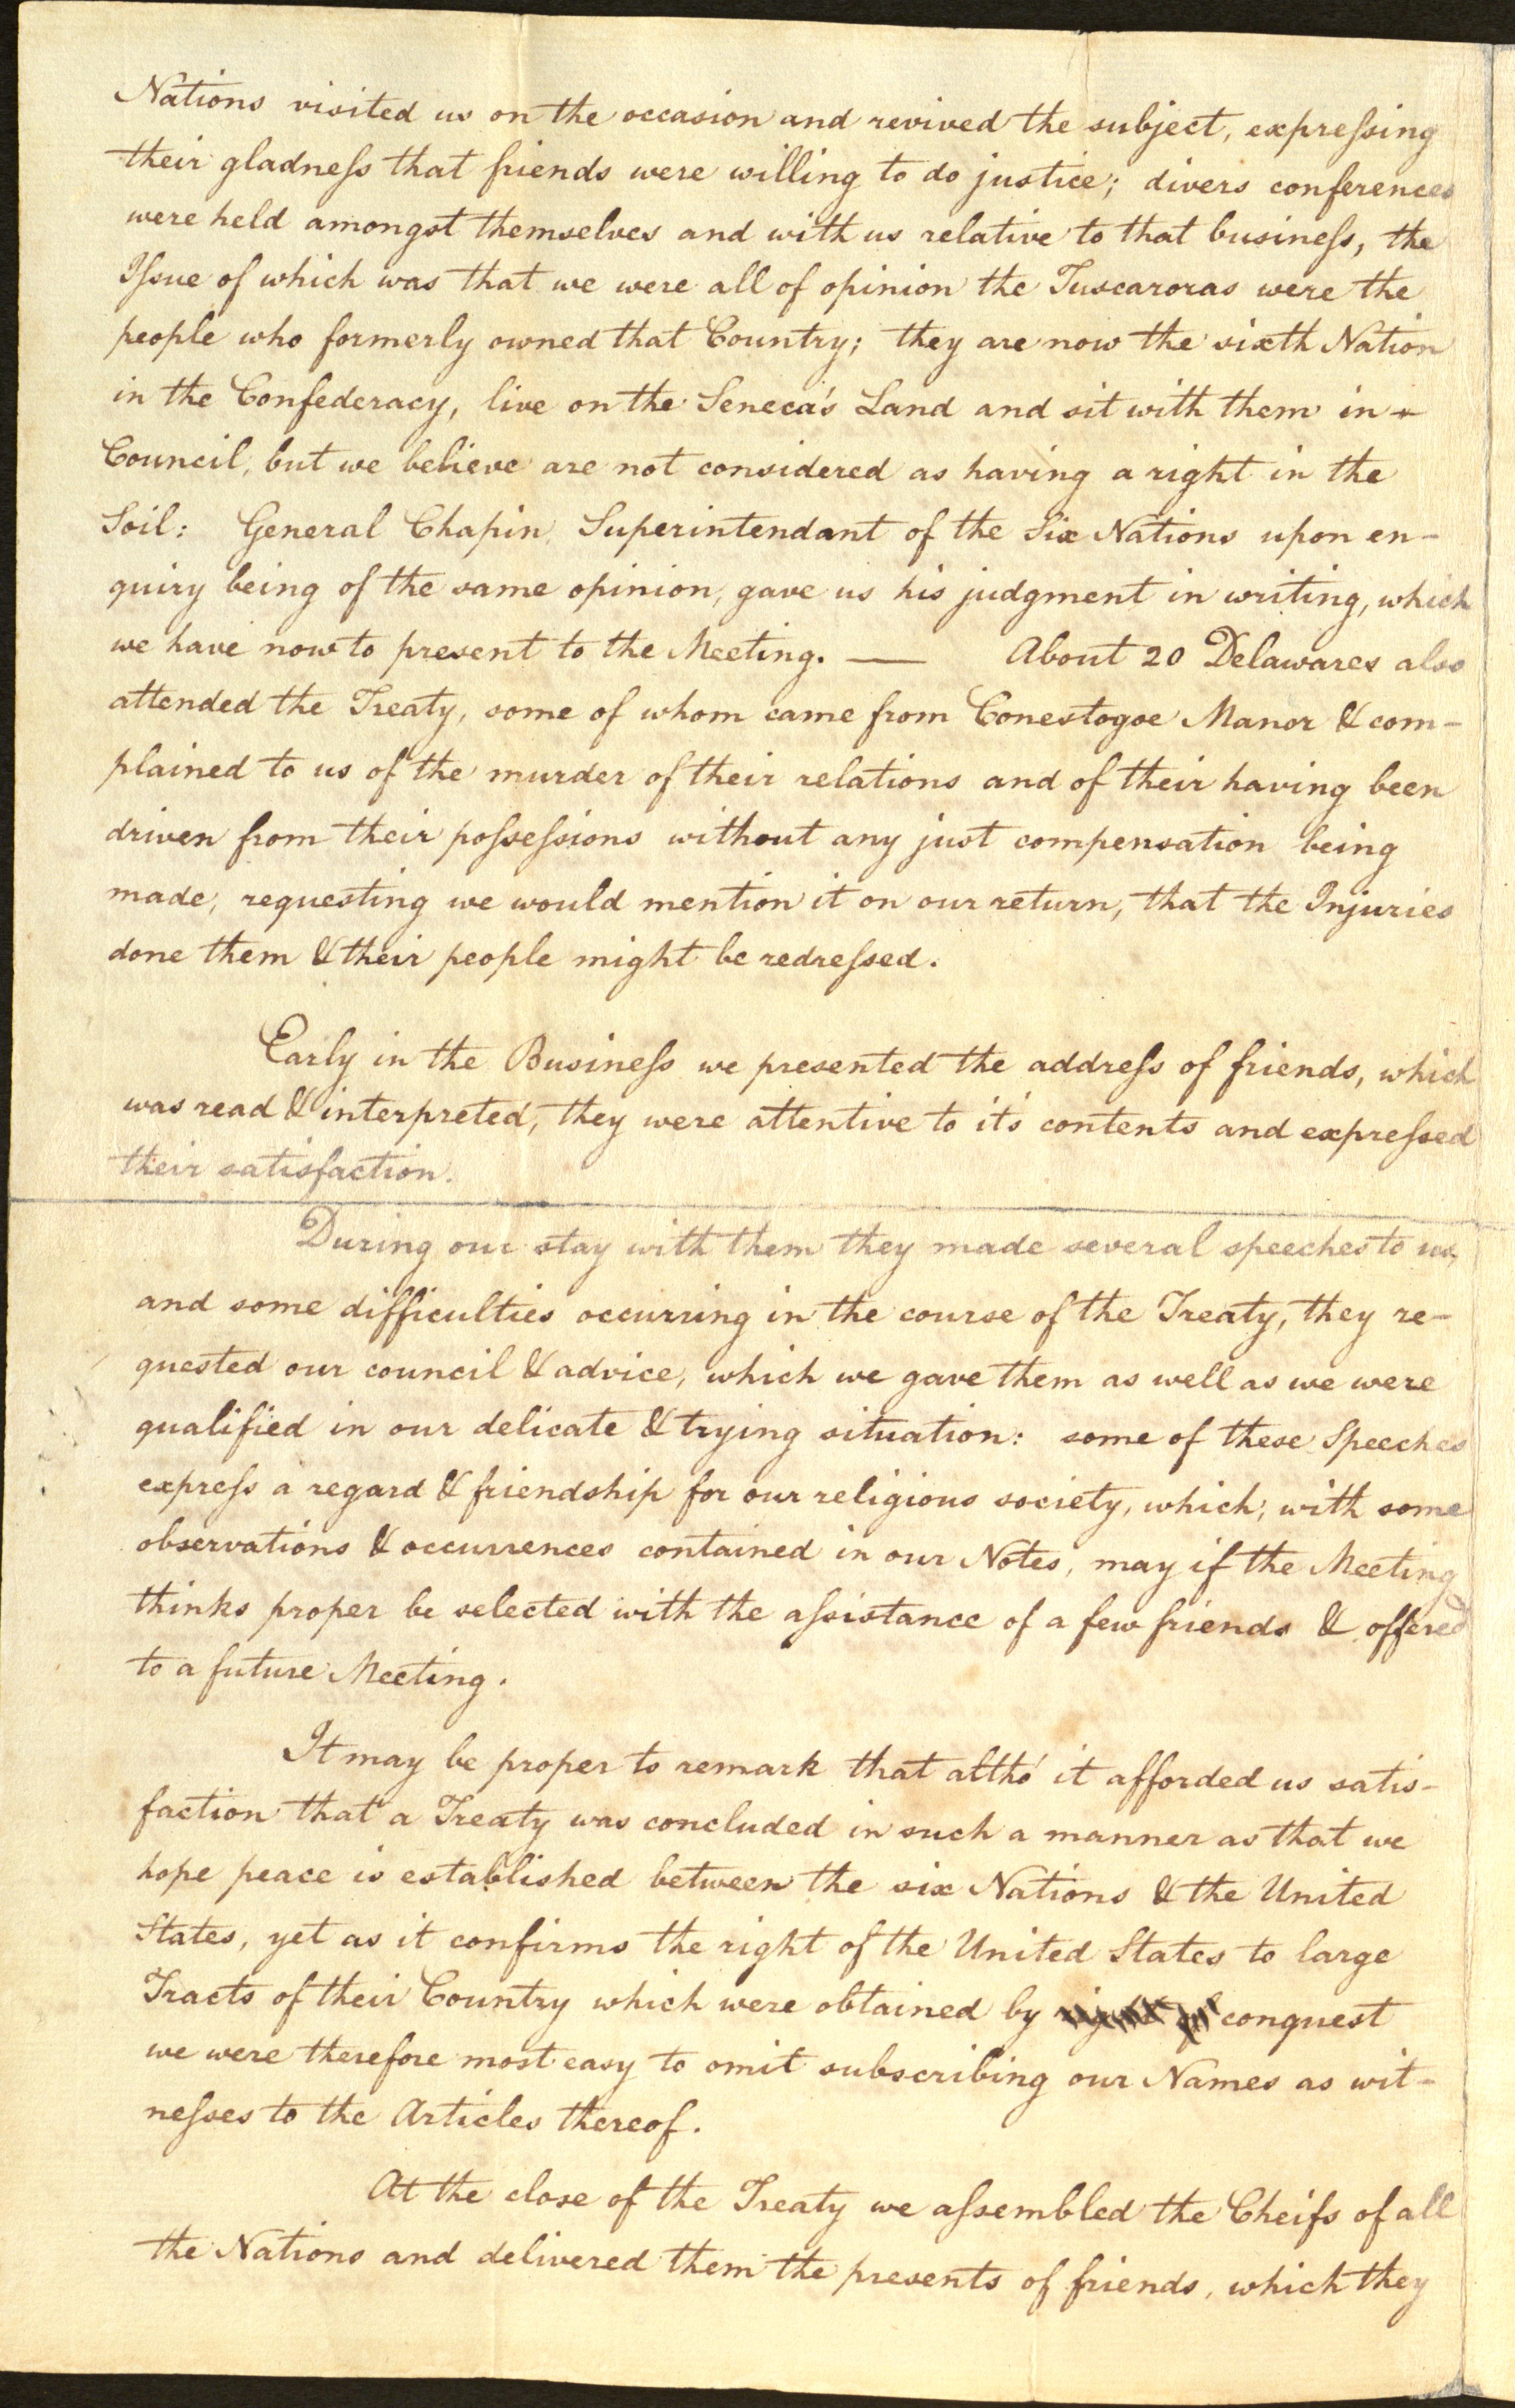 Nations visited us on the occasion and revived the subject, expreſsing
their gladneſs that friends were willing to do justice; divers conferences
were held amongst themselves and with us relative to that busineſs, the
Iſsue of which was that we were all of opinion the Tuscaroras were the
people who formerly owned that Country; they are now the sixth Nation
in the Confederacy, live on the Seneca's Land and sit with them in
Council, but we believe are not considered as having a right in the
Soil: General Chapin Superintendant of the Six Nations upon en-
quiry being of the same opinion, gave us his judgment in writing, which
we have now to present to the Meeting. — About 20 Delawares also
attended the Treaty, some of whom came from Conestogoe Manor & com-
plained to us of the murder of their relations and of their having been
driven from their poſseſsions without any just compensation being
made, requesting we would mention it on our return, that the Injuries
done them & their people might be redreſsed.
Early in the Busineſs we presented the addreſs of friends, which
was read & interpreted, they were attentive to it's contents and expreſsed
their satisfaction.
During our stay with them they made several speeches to us,
and some difficulties occurring in the course of the Treaty, they re-
quested our council & advice, which we gave them as well as we were
qualified in our delicate & trying situation: some of these Speeches
expreſs a regard & friendship for our religious society, which, with some
observations & occurrences contained in our Notes, may if the Meeting
thinks proper be selected with the aſsistance of a few friends & offered
to a future Meeting.
It may be proper to remark that altho' it afforded us satis-
faction that a Treaty was concluded in such a manner as that we
hope peace is established between the six Nations & the United
States, yet as it confirms the right of the United States to large
Tracts of their Country which were obtained by right of conquest
we were therefore most easy to omit subscribing our Names as wit-
neſses to the Articles thereof.
At the close of the Treaty we aſsembled the Cheifs of all
the Nations and delivered them the presents of friends, which they